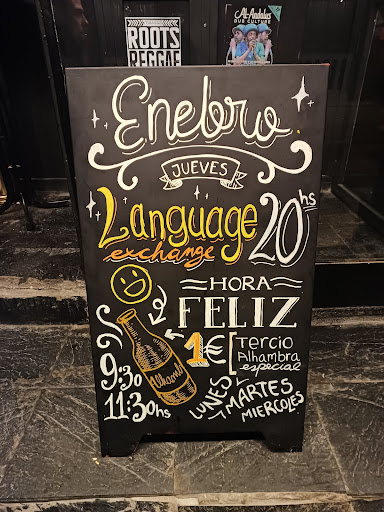 ROOTS
REGGAE
Al-Andalus
DUB CULTURE
Enebro
JUEVES
Language
exchange
20hs
HORA
FELIZ
1€ [Tercio
Alhambra
especial
Alhambra
9:30
11:30hs
LUNES
Y MARTES
MIERCOLES